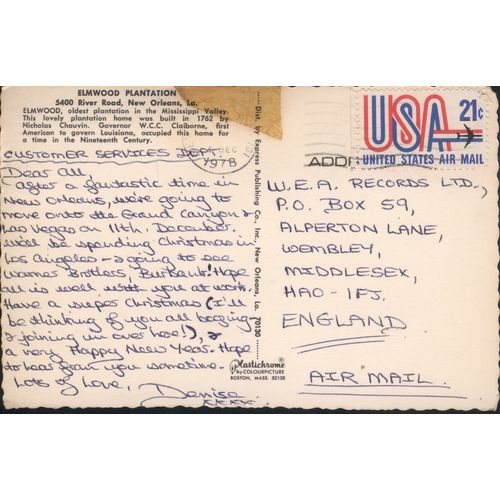 ELMWOOD PLANTATION
5400 River Road, New Orleans, La.
ELMWOOD, oldest plantation in the Mississippi Valley.
This lovely plantation home was built in 1762 by
Nicholas Chauvin. Governor W.C.C. Claiborne, first
American to govern Louisiana, occupied this home for
a time in the Nineteenth Century.
CUSTOMER SERVICES DEPT.
Dear All,
After a fantastic time in
New Orleans, we're going to
move onto the Grand Canyon &
Las Vegas on 11th. December.
We'll be spending Christmas in
Los Angeles - & going to see
Warner Brothers, Burbank! Hope
all is well with you at work.
Have a super Christmas (I'll
be thinking of you all boozing
& joining in over here!), &
a very Happy New Year. Hope
to hear from you sometime -
Lots of Love, Denise
xxxx.
Dist. by Express Publishing Co., Inc., New Orleans, La. 70130
Plastichrome
by COLOURPICTURE
BOSTON, MASS. 02130
DEC
1978
ADDR
USA 21c
UNITED STATES AIR MAIL
W.E.A. RECORDS LTD.,
P.O. BOX 59,
ALPERTON LANE,
WEMBLEY,
MIDDLESEX,
HAO-1FJ.
ENGLAND
AIR MAIL.